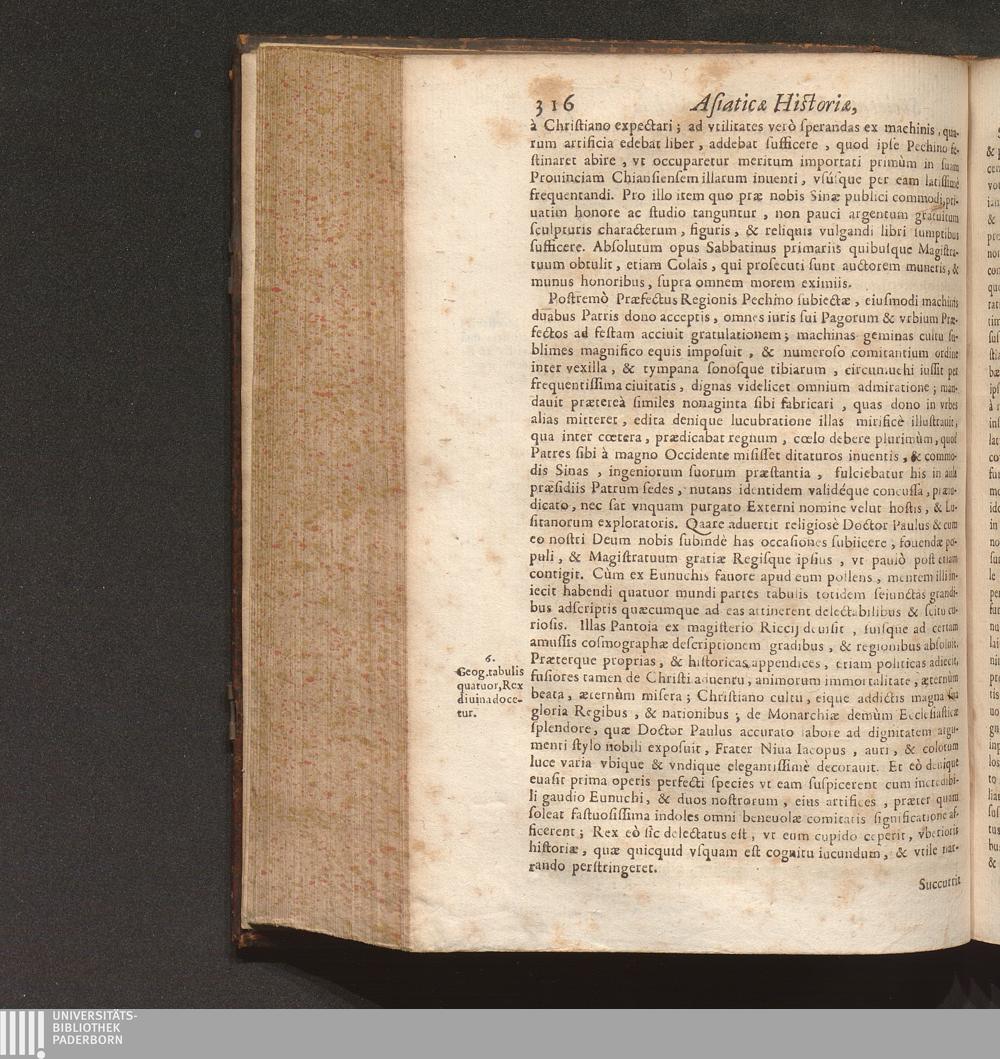 316 Aſiaticæ Hiſtoriæ,
à Chriſtiano expectari; ad vtilitates verò ſperandas ex machinis, qua-
rum artificia edebat liber, addebat ſufficere, quod ipſe Pechino fe-
ſtinaret abire, vt occuparetur meritum importati primùm in ſuam
Prouinciam Chianſienſem illarum inuenti, vſúſque per eam latiſſimè
frequentandi. Pro illo item quo præ nobis Sinæ publici commodi, pri-
uatim honore ac ſtudio tanguntur, non pauci argentum gratuitum
ſculpturis characterum, figuris, & reliquis vulgandi libri ſumptibus
ſufficere. Abſolutum opus Sabbatinus primariis quibuſque Magiſtra-
tuum obtulit, etiam Colais, qui proſecuti ſunt auctorem muneris, &
munus honoribus, ſupra omnem morem eximiis.
Poſtremò Præfectus Regionis Pechino ſubiectæ, eiuſmodi machinis
duabus Patris dono acceptis, omnes iuris ſui Pagorum & vrbium Præ-
fectos ad feſtam acciuit gratulationem; machinas geminas cultu ſu-
blimes magnifico equis impoſuit, & numeroſo comitantium ordine
inter vexilla, & tympana ſonoſque tibiarum, circumuehi iuſſit per
frequentiſſima ciuitatis, dignas videlicet omnium admiratione; man-
dauit prætereà ſimiles nonaginta ſibi fabricari, quas dono in vrbes
alias mitteret, edita denique lucubratione illas mirificè illuſtrauit,
qua inter cœtera, prædicabat regnum, cœlo debere plurimùm, quod
Patres ſibi à magno Occidente miſiſſet ditaturos inuentis, & commo-
dis Sinas, ingeniorum ſuorum præſtantia, fulciebatur his in aula
præſidiis Patrum ſedes, nutans identidem validéque concuſſa, præiu-
dicato, nec ſat vnquam purgato Externi nomine velut hoſtis, & Lu-
ſitanorum exploratoris. Quare aduertit religioſè Doctor Paulus & cum
eo noſtri Deum nobis ſubindè has occaſiones ſubiicere, fouendæ po-
puli, & Magiſtratuum gratiæ Regiſque ipſius, vt paulò poſt etiam
contigit. Cùm ex Eunuchis fauore apud eum pollens, mentem illi in-
iecit habendi quatuor mundi partes tabulis totidem ſeiunctas grandi-
bus adſcriptis quæcumque ad eas attinerent delectabilibus & ſcitu cu-
rioſis. Illas Pantoia ex magiſterio Riccij diuiſit, ſuiſque ad certam
amuſſis coſmographæ deſcriptionem gradibus, & regionibus abſoluit.
Præterque proprias, & hiſtoricas appendices, etiam politicas adiecit,
6.
Geog. tabulis
quatuor, Rex
diuina doce-
tur.
fuſiores tamen de Chriſti aduentu, animorum immortalitate, æternùm
beata, æternùm miſera; Chriſtiano cultu, eique addictis magna ſua
gloria Regibus, & nationibus; de Monarchiæ demùm Eccleſiaſticæ
ſplendore, quæ Doctor Paulus accurato labore ad dignitatem argu-
menti ſtylo nobili expoſuit, Frater Niua Iacopus, auri, & colorum
luce varia vbique & vndique elegantiſſimè decorauit. Et eò denique
euaſit prima operis perfecti ſpecies vt eam ſuſpicerent cum incredibi-
li gaudio Eunuchi, & duos noſtrorum, eius artifices, præter quam
ſoleat faſtuoſiſſima indoles omni beneuolæ comitatis ſignificatione af-
ficerent; Rex eò ſic delectatus eſt, vt eum cupido ceperit, vberioris
hiſtoriæ, quæ quicquid vſquam eſt cognitu iucundum, & vtile nar-
rando perſtringeret.
Succurrit
UNIVERSITÄTS-
BIBLIOTHEK
PADERBORN